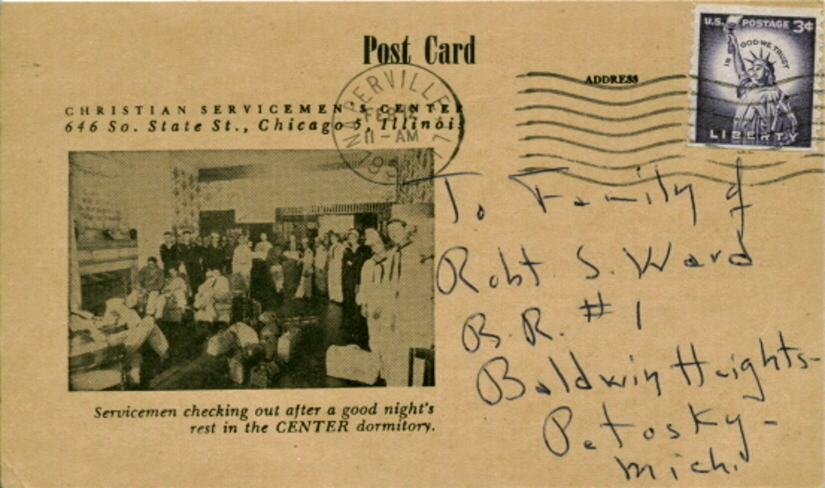 Post Card
ADDRESS
U.S. POSTAGE 3¢
IN GOD WE TRUST
LIBERTY
NAPERVILLE
FEB
11-AM
ILL
CHRISTIAN SERVICEMEN'S CENTER
646 So. State St., Chicago 5, Illinois
To Family of
Robt S. Ward
R.R. #1
Baldwin Heights-
Petosky-
Mich.
Servicemen checking out after a good night's
rest in the CENTER dormitory.